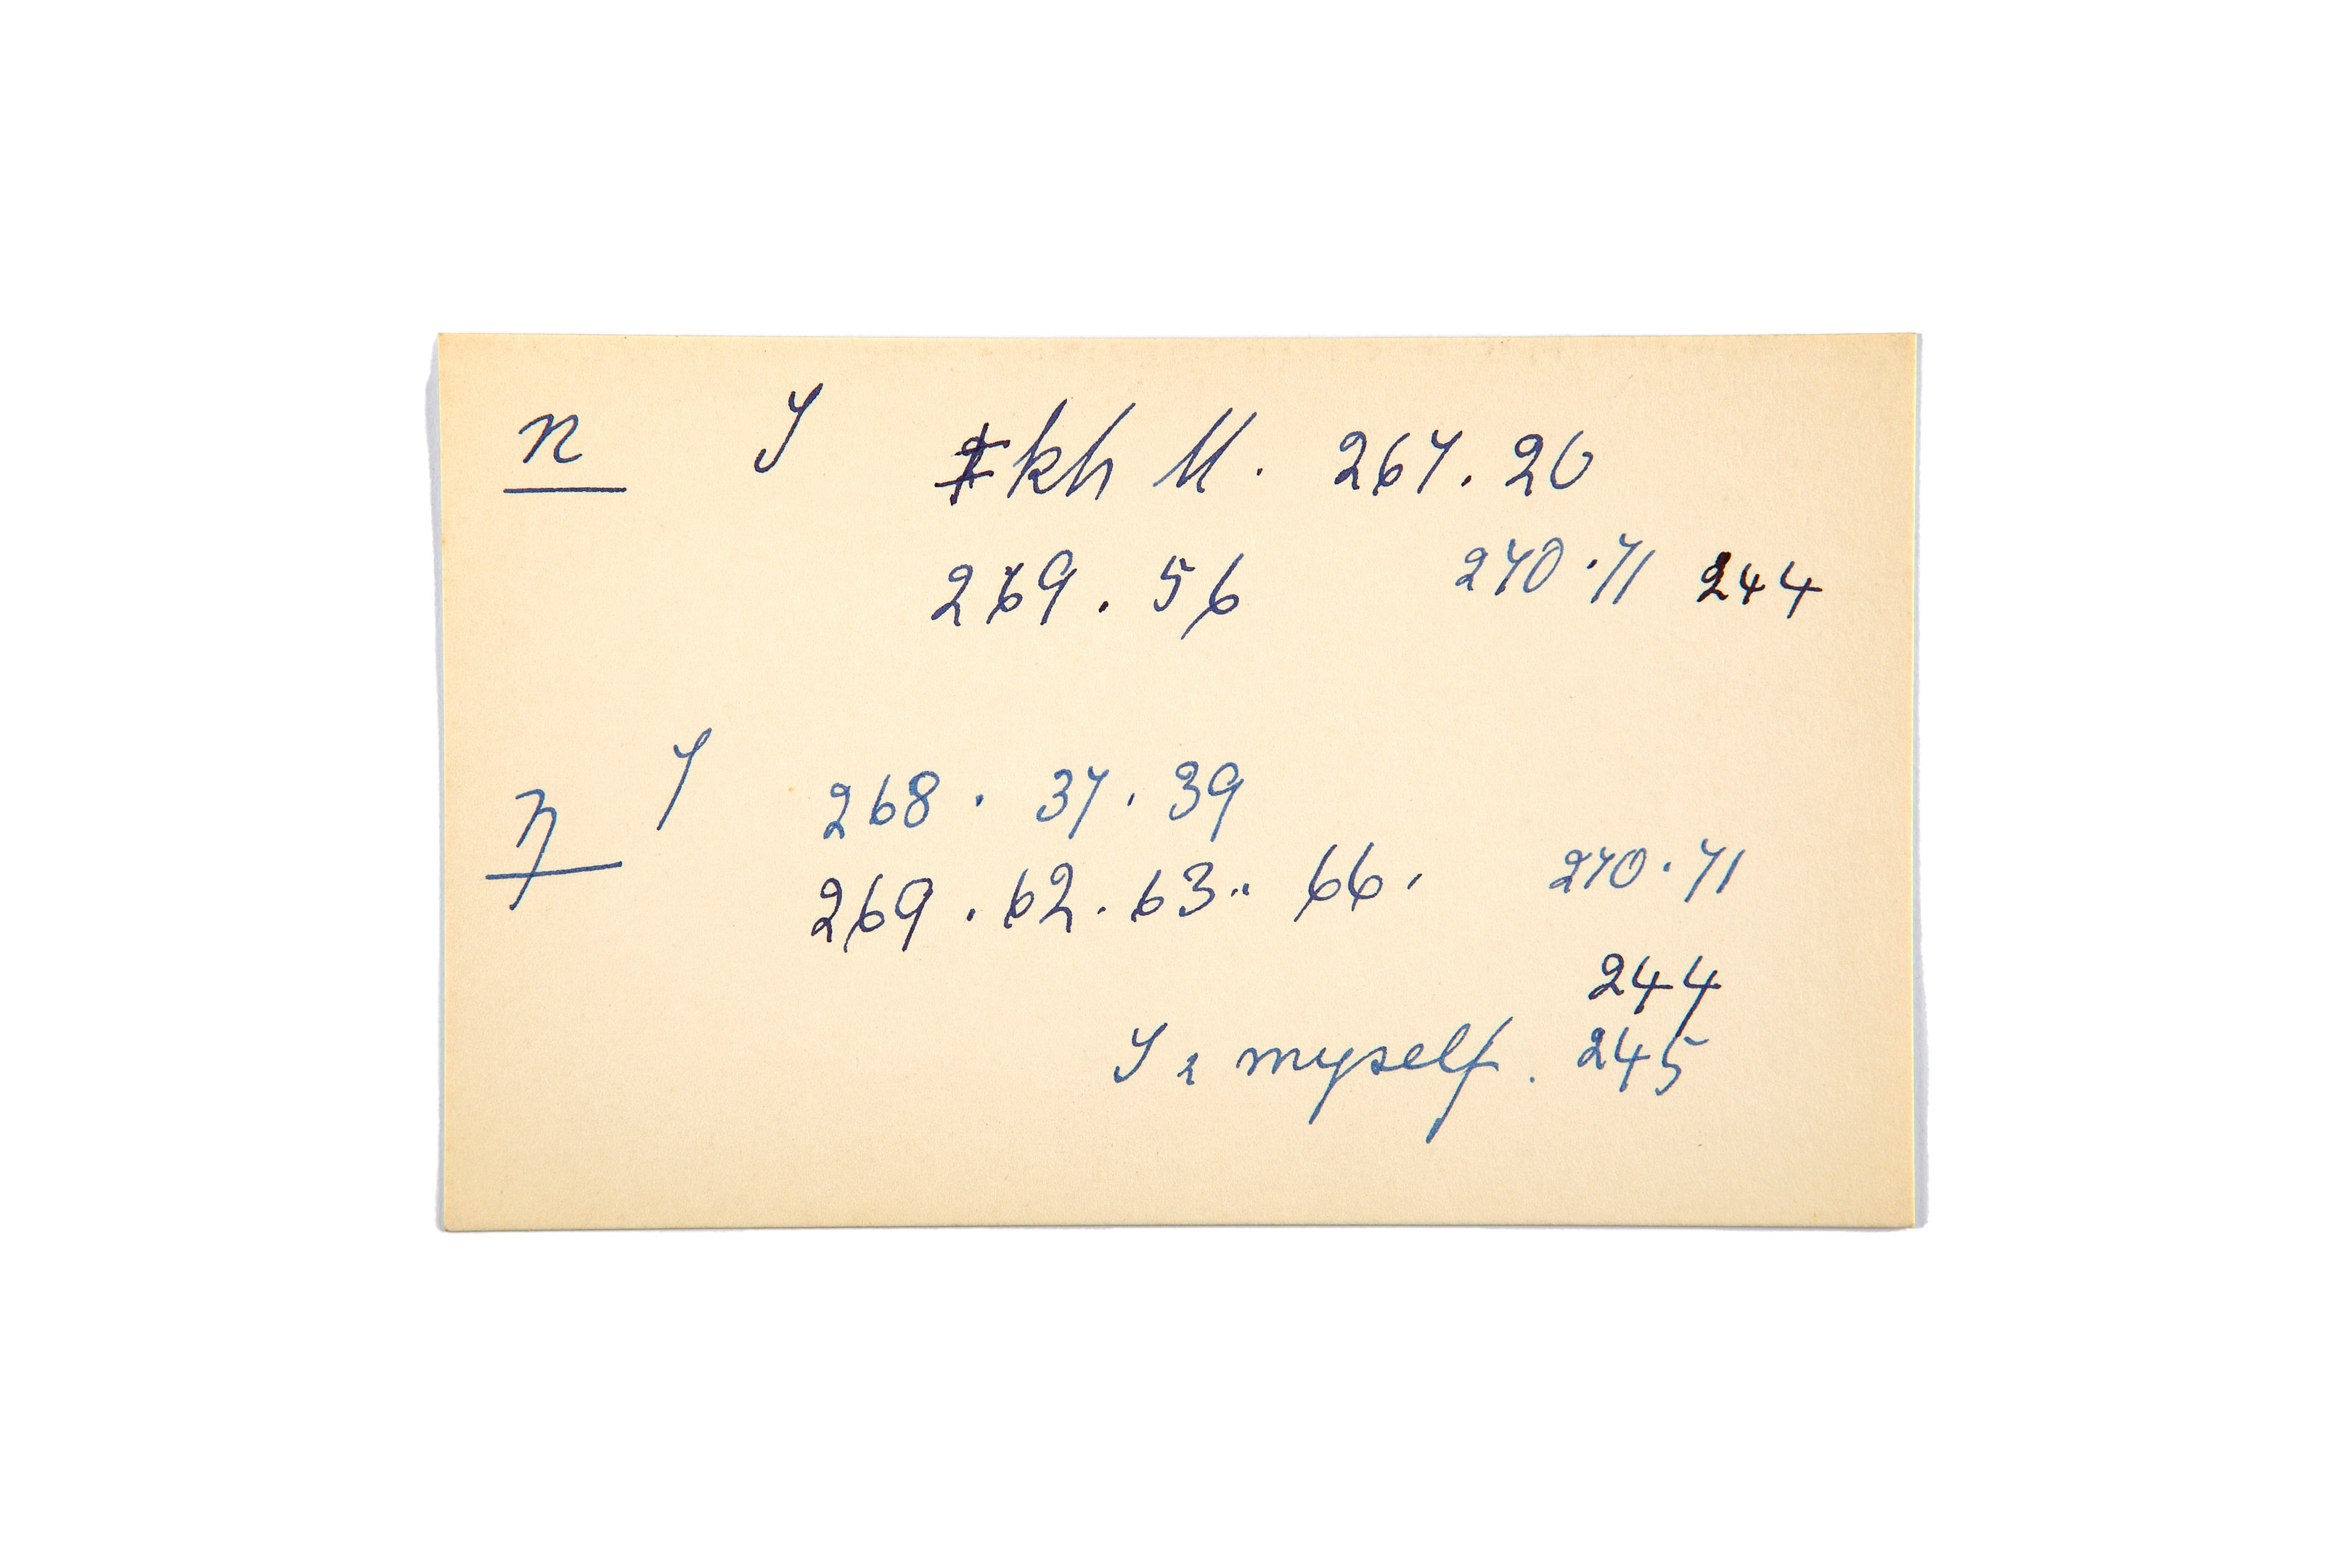 n I ǂkh 267. 20
269. 56 270.71 244
ŋ I 268. 37. 39
269. 62. 63.. 66. 270.71
244
I, myself. 245